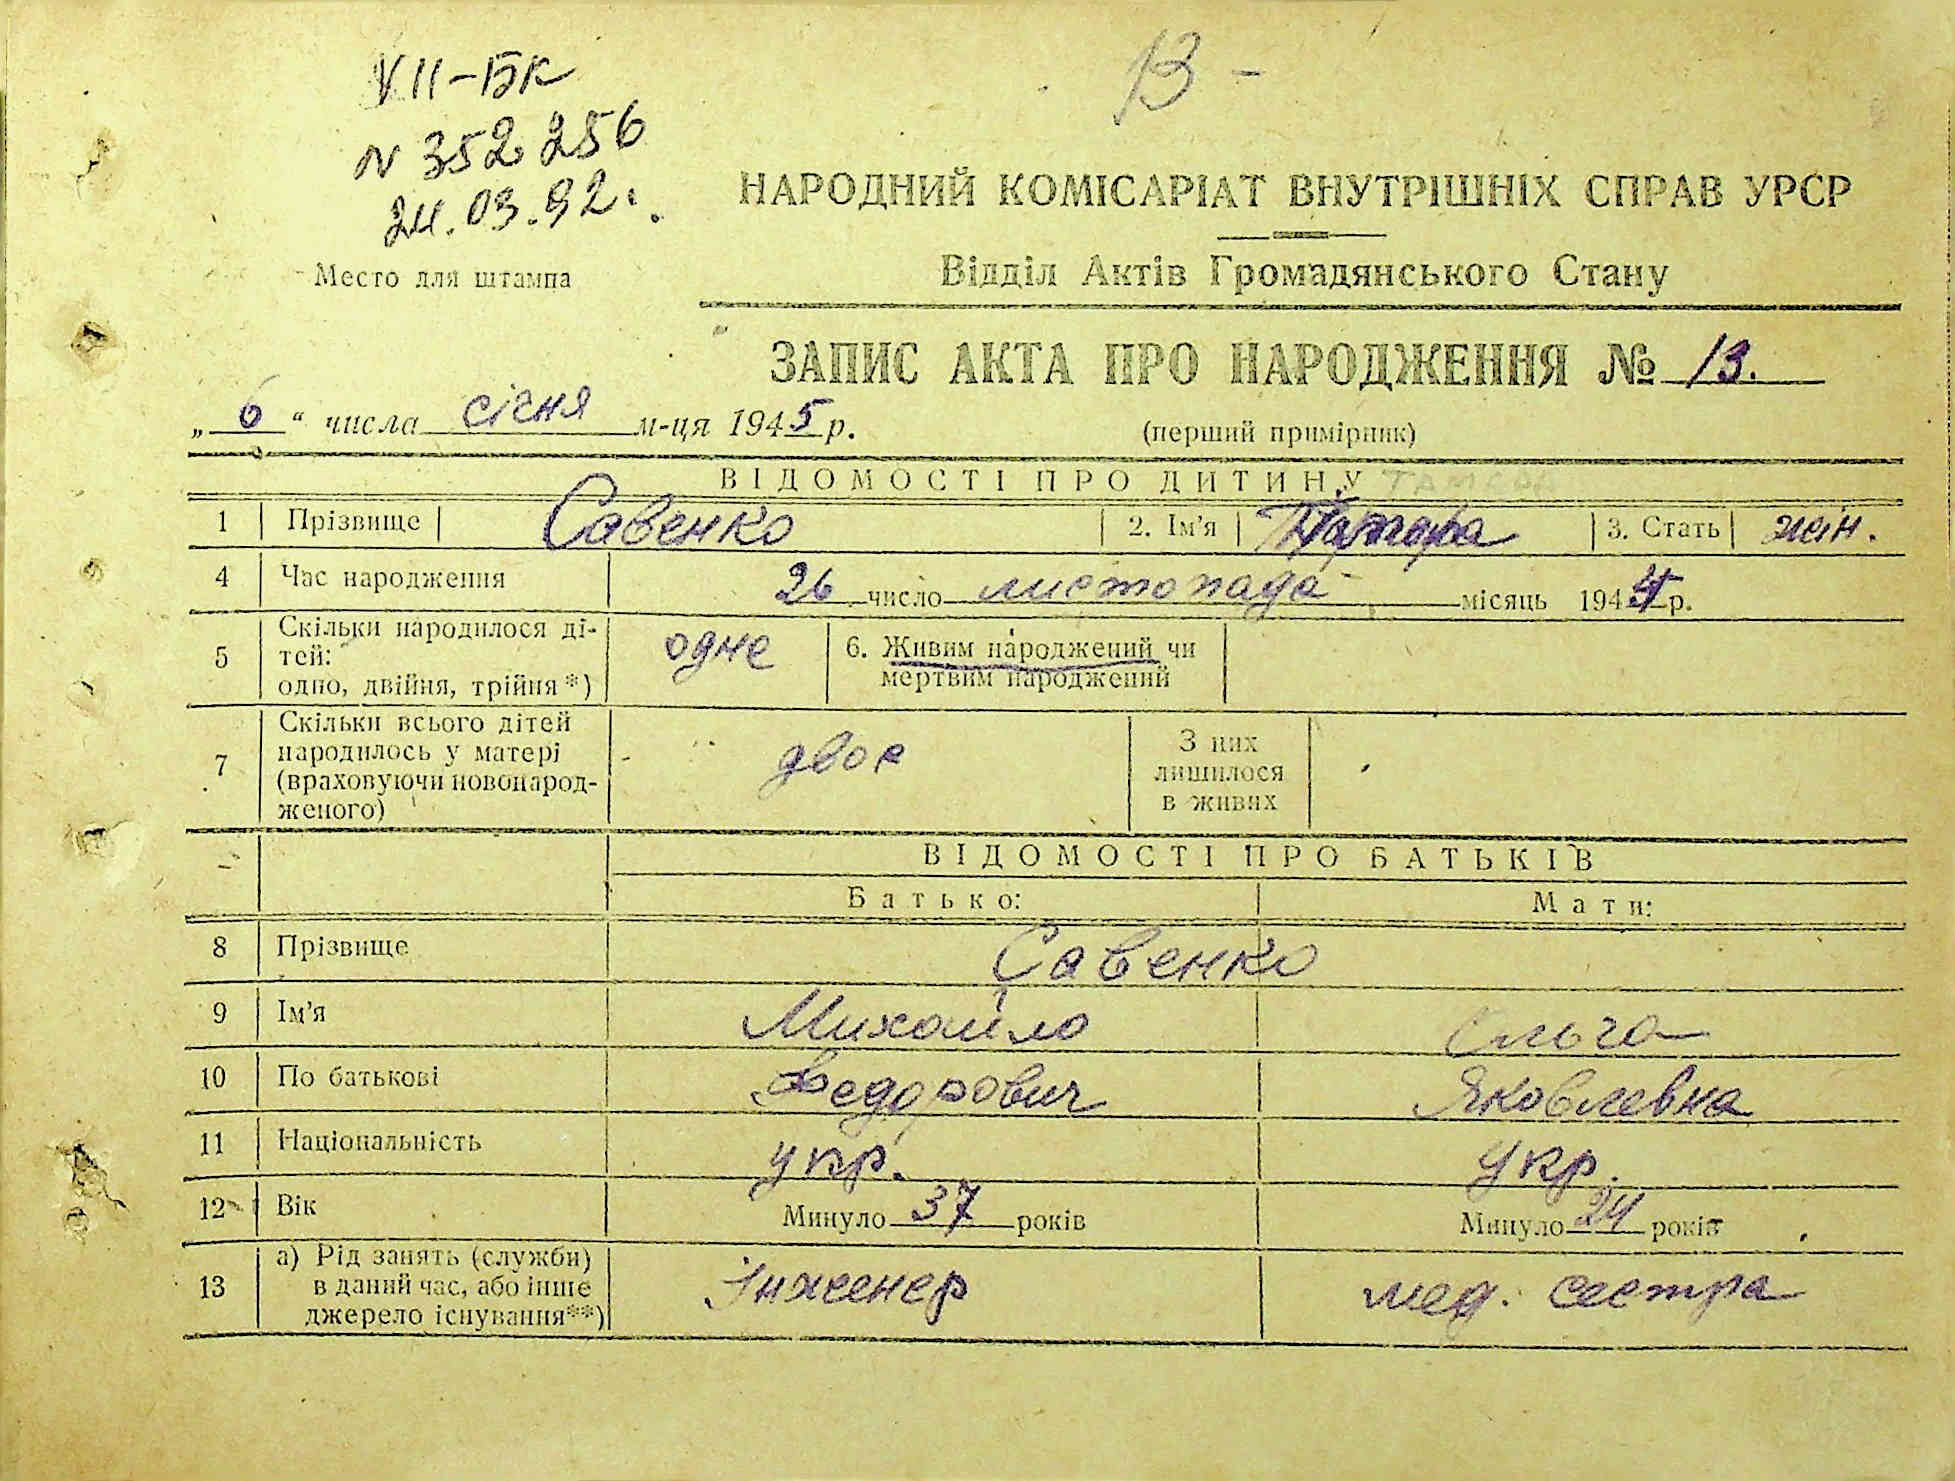 VII-БК
N 352256
24.03.92.
13 -
НАРОДНИЙ КОМІСАРІАТ ВНУТРІШНІХ СПРАВ УРСР
Место для штампа
Відділ Актів Громадянського Стану
ЗАПИС АКТА ПРО НАРОДЖЕННЯ № 13.
„6“ числа січня м-ця 1945 р.
(перший примірник)
ВІДОМОСТІ ПРО ДИТИНУ
1 Прізвище Савенко 2. Ім'я 3. Стать жін.
4 Час народження 26 число листопада місяць 1944 р.
5 Скільки народилося ді-
тей:
одно, двійня, трійня*)
одне
6. Живим народжений чи
мертвим народжений
7 Скільки всього дітей
народилось у матері
(враховуючи новонарод-
женого)
двое
З них
лишилося
в живих
ВІДОМОСТІ ПРО БАТЬКІВ
Батько: Мати:
8 Прізвище Савенко
9 Ім'я Михайло Ольга
10 По батькові Федорович Яковлевна
11 Національність укр. укр.
12 Вік Минуло 37 років Минуло 24 років
13 а) Рід занять (служби)
в даний час, або інше
джерело існування**)
Інженер мед. сестра